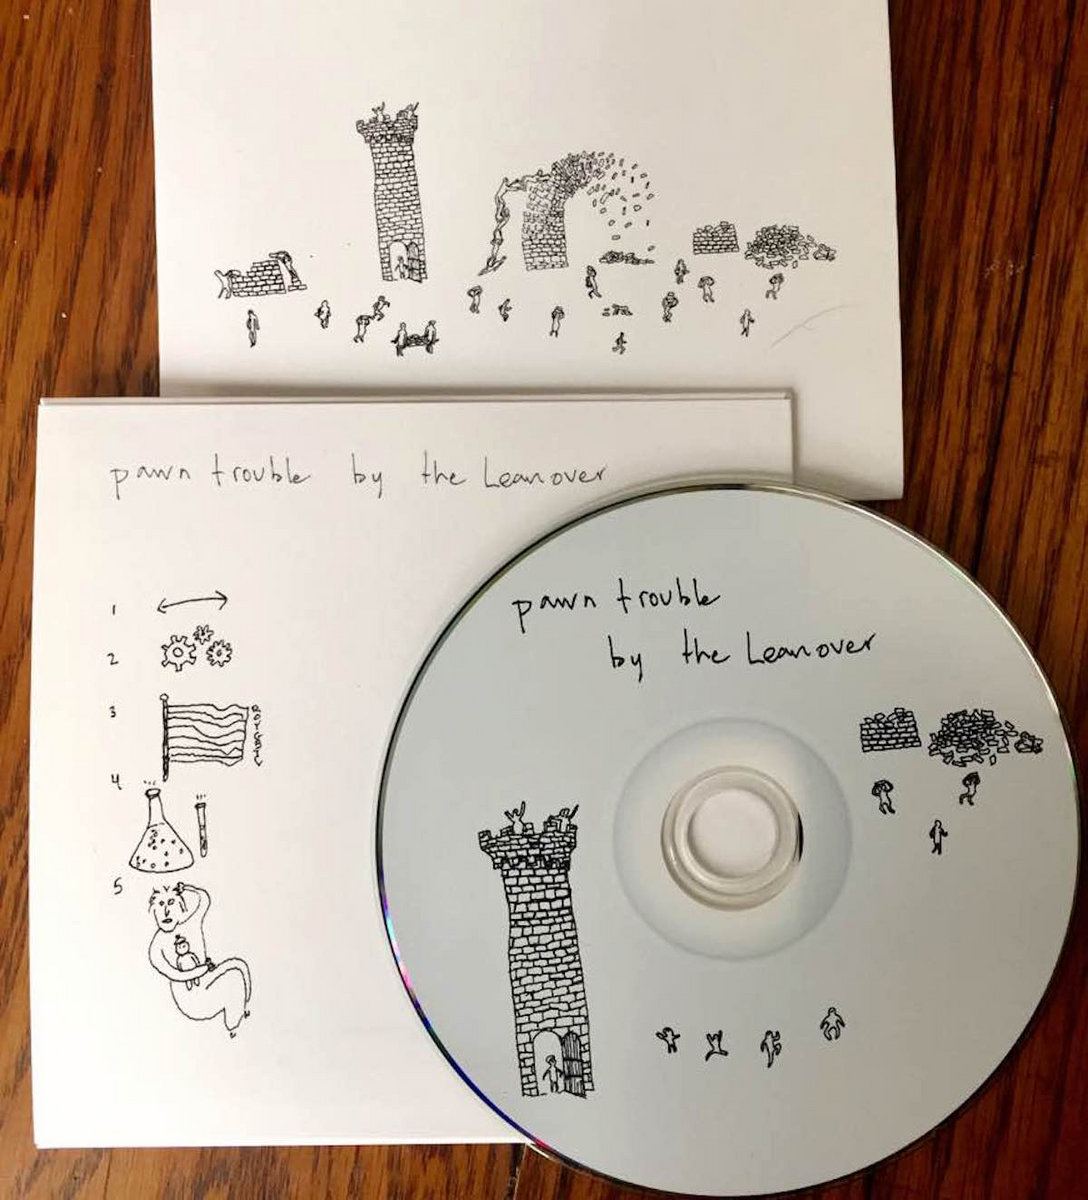 pawn trouble by the Leanover
1
2
3
ROYGBIV
4
5
pawn trouble
by the Leanover